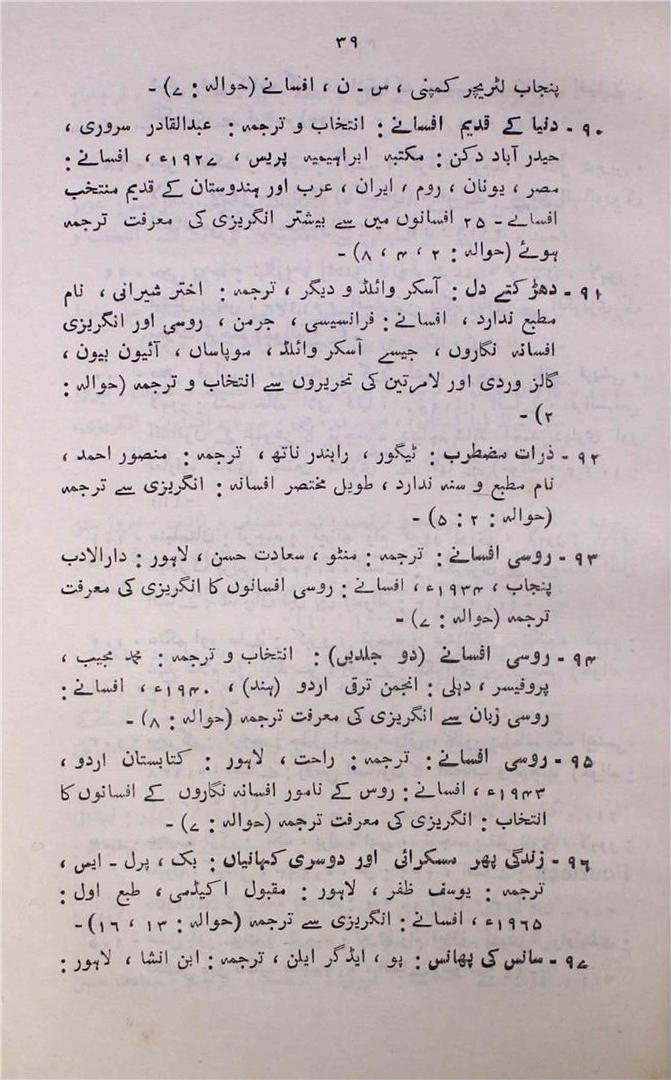 ۳۹
پنجاب لٹریچر کمپنی ، س ۔ ن ، افسانے (حوالہ : ۷) ۔
۹۰ ۔ دنیا کے قدیم افسانے : انتخاب و ترجمہ : عبدالقادر سروری ،
حیدر آباد دکن : مکتبہ ابراہیمیہ پریس ، ۱۹۲۷ء ، افسانے :
مصر ، یونان ، روم ، ایران ، عرب اور ہندوستان کے قدیم منتخب
افسانے ۔ ۲۵ افسانوں میں سے بیشتر انگریزی کی معرفت ترجمہ
ہوئے (حوالہ : ۲ ، ۴ ، ۸) ۔
۹۱ ۔ دھڑکتے دل : آسکر وائلڈ و دیگر ، ترجمہ : اختر شیرانی ، نام
مطبع ندارد ، افسانے : فرانسیسی ، جرمن ، روسی اور انگریزی
افسانہ نگاروں ، جیسے آسکر وائلڈ ، موپاساں ، آئیون بیون ،
گالز وردی اور لامرتین کی تحریروں سے انتخاب و ترجمہ (حوالہ :
۲) ۔
۹۲ ۔ ذرات مضطرب : ٹیگور ، رابندر ناتھ ، ترجمہ : منصور احمد ،
نام مطبع و سنہ ندارد ، طویل مختصر افسانہ : انگریزی سے ترجمہ
(حوالہ : ۲ : ۵) ۔
۹۳ ۔ روسی افسانے : ترجمہ : منٹو ، سعادت حسن ، لاہور : دارالادب
پنجاب ، ۱۹۳۴ء ، افسانے : روسی افسانوں کا انگریزی کی معرفت
ترجمہ (حوالہ : ۷) ۔
۹۴ ۔ روسی افسانے (دو جلدیں) : انتخاب و ترجمہ : محمد مجیب ،
پروفیسر ، دہلی : انجمن ترقی اردو (ہند) ، ۱۹۴۰ء ، افسانے :
روسی زبان سے انگریزی کی معرفت ترجمہ (حوالہ : ۸) ۔
۹۵ ۔ روسی افسانے : ترجمہ : راحت ، لاہور : کتابستان اردو ،
۱۹۴۳ء ، افسانے : روس کے نامور افسانہ نگاروں کے افسانوں کا
انتخاب : انگریزی کی معرفت ترجمہ (حوالہ : ۷) ۔
۹۶ ۔ زندگی پھر مسکرائی اور دوسری کہانیاں : بک ، پرل ۔ ایس ،
ترجمہ : یوسف ظفر ، لاہور : مقبول اکیڈمی ، طبع اول :
۱۹۶۵ء ، افسانے : انگریزی سے ترجمہ (حوالہ : ۱۳ ، ۱۶) ۔
۹۷ ۔ سانس کی پھانس : پو ، ایڈگر ایلن ، ترجمہ : ابن انشا ، لاہور :